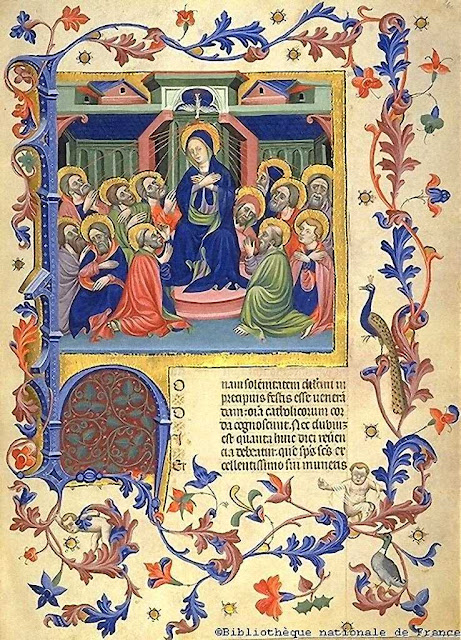 O nam
precipuas festas esse venera
D dam: oīa catholicorum cor
I da cognoscunt. Nec dubiuz
est quanta huic diei reveren
cia debeatur: quē sp̄s sc̄s ex
cellentissimo sui muneris
©Bibliothèque nationale de France